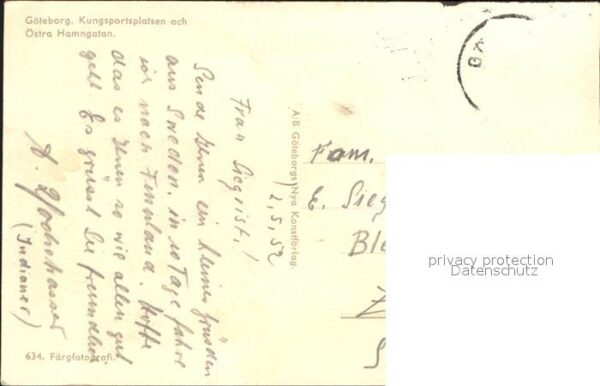 Göteborg. Kungsportsplatsen och
Östra Hamngatan.
2,5,52
Frau Siegrist!
Sende Ihnen ein kleines Grüsschen
aus Sweden, in 10 Tage fahre
ich nach Finnland. Hoffe
das es Ihnen so wie allen gut
geht. Es grüsst Sie freundlich
A.
(Indianer)
634. Färgfotografi.
A B Göteborgs Nya Konstförlag.
Fam.
E. Sieg
Ble
privacy protection
Datenschutz